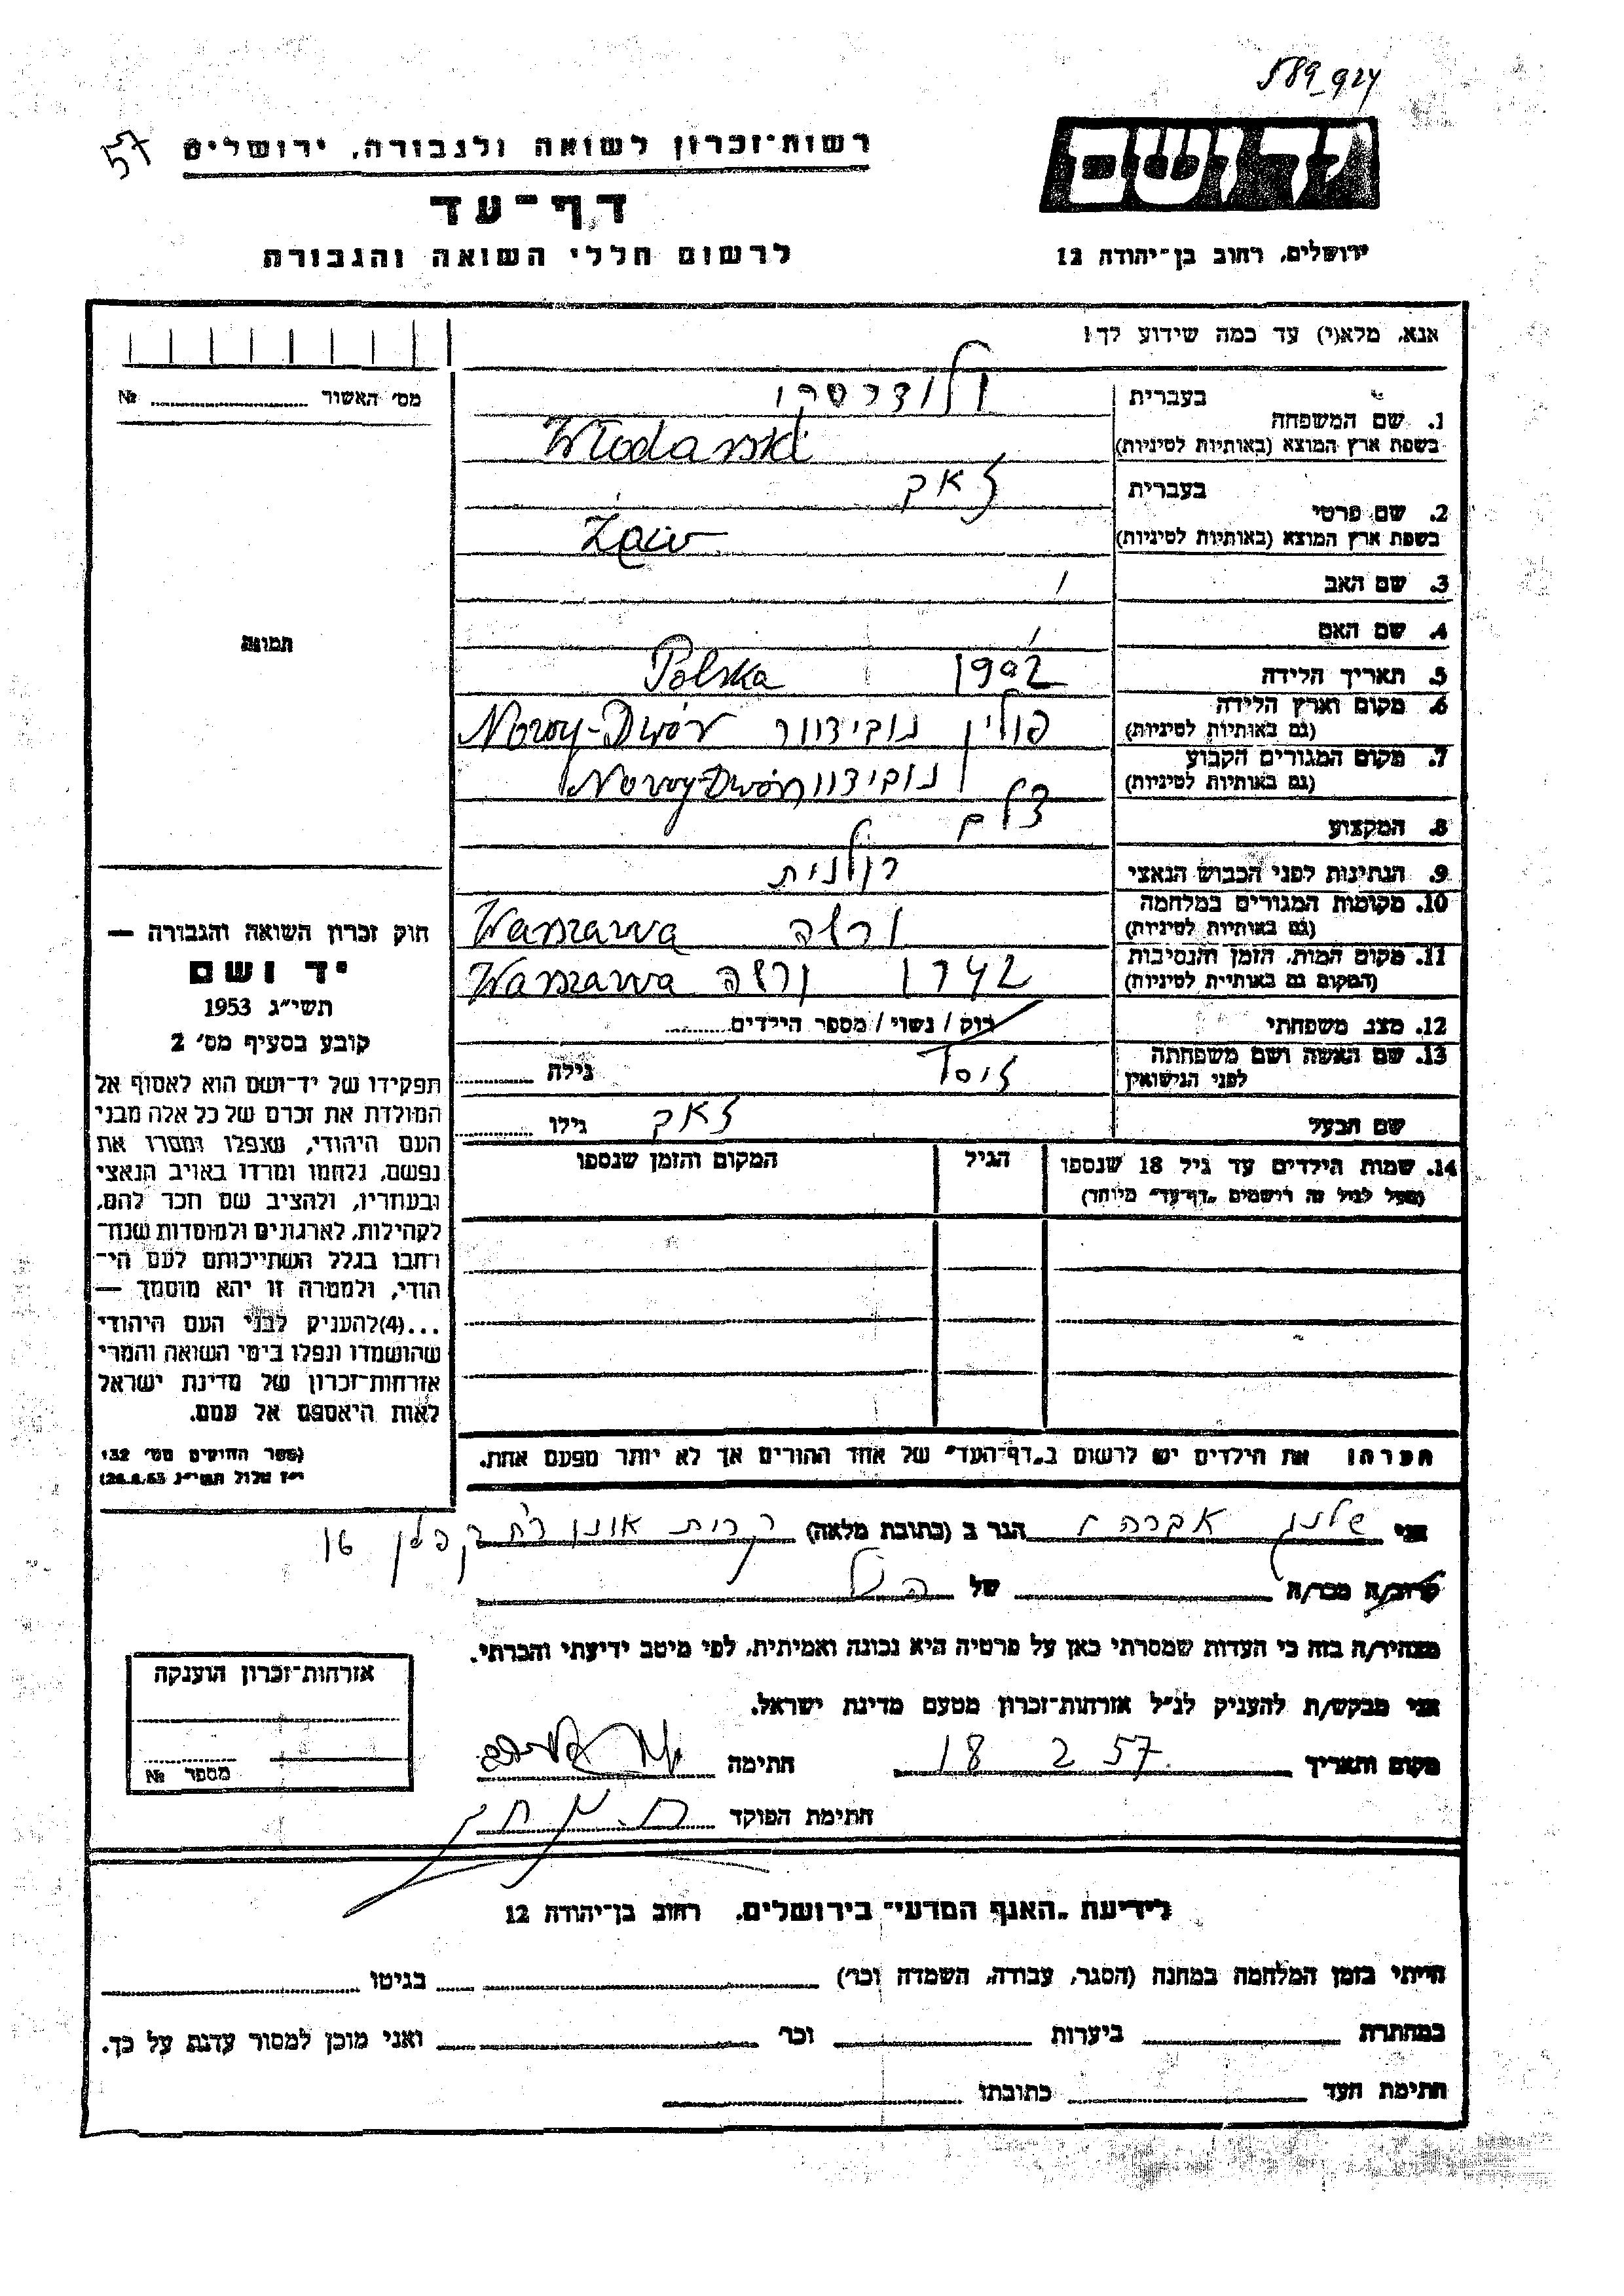 589_924
57
רשות־זכרון לשואה ולגבורה, ירושלים
יד ושם
דף־עד
לרשום חללי השואה והגבורה
ירושלים, רחוב בן־יהודה 12
אנא, מלא(י) עד כמה שידוע לך!
מס׳ האשור № 
1. שם המשפחה
בעברית
ולודרסקי
בשפת ארץ המוצא (באותיות לטיניות)
Włodarski
2. שם פרטי
בעברית
בשפת ארץ המוצא (באותיות לטיניות)
3. שם האב /
4. שם האם /
5. תאריך הלידה 1902 Polska
6. מקום וארץ הלידה
(גם באותיות לטיניות)
פולין נובידוור Nowy-Dwór
7. מקום המגורים הקבוע
(גם באותיות לטיניות)
נובידוור Nowy-Dwór
8. המקצוע צלם
9. הנתינות לפני הכבוש הנאצי פולנית
10. מקומות המגורים במלחמה
(גם באותיות לטיניות)
ורשה Warszawa
11. מקום המות, הזמן והנסיבות
(המקום גם באותיות לטיניות)
1942 ורשה Warszawa
12. מצב משפחתי רוק / נשוי / מספר הילדים
13. שם האשה ושם משפחתה
לפני הנישואין
גילה
שם הבעל גילו
14. שמות הילדים עד גיל 18 שנספו
(מעל לגיל זה רושמים „דף־עד״ מיוחד)
הגיל
המקום והזמן שנספו
תמונה
חוק זכרון השואה והגבורה —
יד ושם
תשי״ג 1953
קובע בסעיף מס׳ 2
תפקידו של יד־ושם הוא לאסוף אל
המולדת את זכרם של כל אלה מבני
העם היהודי, שנפלו ומסרו את
נפשם, נלחמו ומרדו באויב הנאצי
ובעוזריו, ולהציב שם וזכר להם,
לקהילות, לארגונים ולמוסדות שנח־
רבו בגלל השתייכותם לעם הי־
הודי, ולמטרה זו יהא מוסמך —
...(4)להעניק לבני העם היהודי
שהושמדו ונפלו בימי השואה והמרי
אזרחות־זכרון של מדינת ישראל
לאות היאספם אל עמם.
(ספר החוקים מס׳ 132
י״ז אלול תשי״ג 28.8.53)
הערה: את הילדים יש לרשום ב„דף־העד״ של אחד ההורים אך לא יותר מפעם אחת.
אני אברהם הגר ב (כתובת מלאה) קרית אונו רח קפלן 16
קרוב/ה מכר/ה של הנ״ל
מצהיר/ה בזה כי העדות שמסרתי כאן על פרטיה היא נכונה ואמיתית, לפי מיטב ידיעתי והכרתי.
אני מבקש/ת להעניק לנ״ל אזרחות־זכרון מטעם מדינת ישראל.
מקום ותאריך 18 2 57 חתימה
חתימת הפוקד
אזרחות־זכרון הוענקה
מספר №
לידיעת „האגף המדעי״ בירושלים, רחוב בן־יהודה 12
הייתי בזמן המלחמה במחנה (הסגר, עבודה, השמדה וכר׳) בגיטו
במחתרת ביערות וכר׳ ואני מוכן למסור עדות על כך.
חתימת העד כתובתו